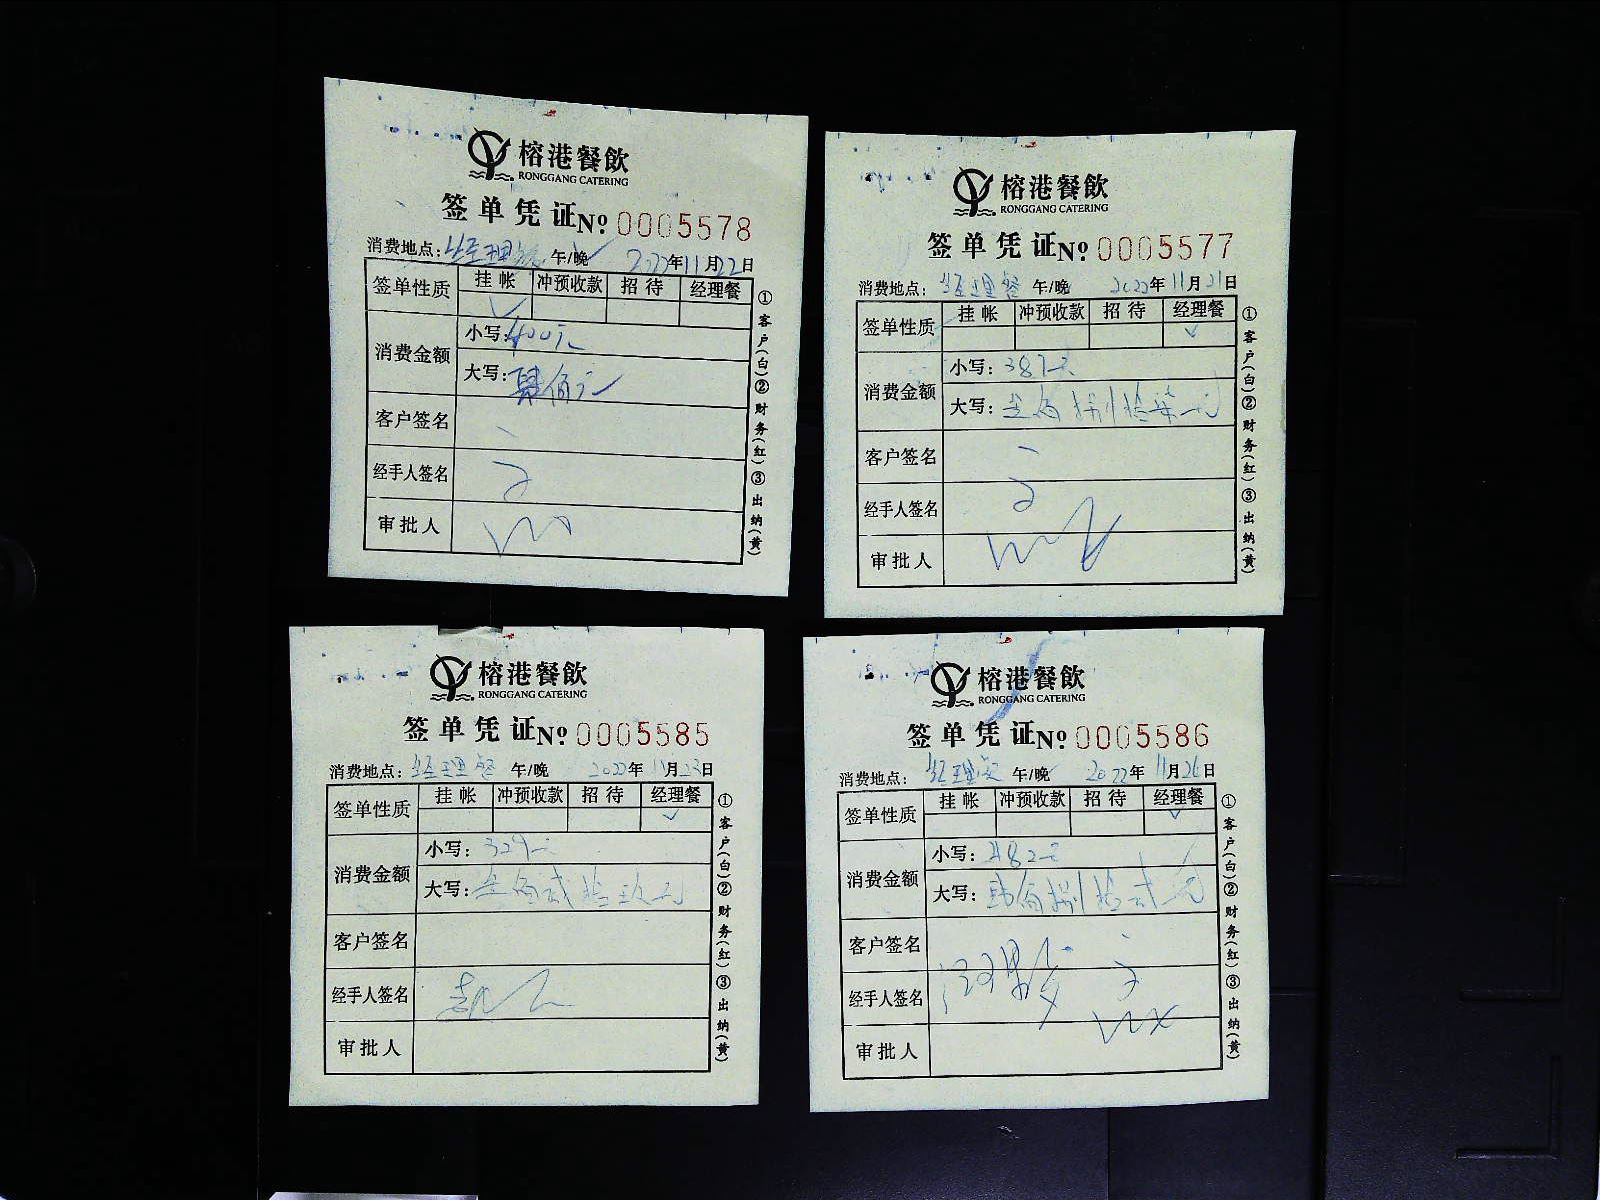 榕港餐飲
RONGGANG CATERING
签单凭证 № 0005578
消费地点: 经理餐 午/晚 2022年11月22日
签单性质 挂帐 冲预收款 招待 经理餐
消费金额 小写: 400元
大写: 肆佰元
客户签名
经手人签名
审批人
①客户(白)②财务(红)③出纳(黄)
榕港餐飲
RONGGANG CATERING
签单凭证 № 0005577
消费地点: 经理餐 午/晚 2022年11月21日
签单性质 挂帐 冲预收款 招待 经理餐
消费金额 小写: 387元
大写: 叁佰捌拾柒元
客户签名
经手人签名
审批人
①客户(白)②财务(红)③出纳(黄)
榕港餐飲
RONGGANG CATERING
签单凭证 № 0005585
消费地点: 经理餐 午/晚 2022年11月23日
签单性质 挂帐 冲预收款 招待 经理餐
消费金额 小写: 329元
大写: 叁佰贰拾玖元
客户签名
经手人签名
审批人
①客户(白)②财务(红)③出纳(黄)
榕港餐飲
RONGGANG CATERING
签单凭证 № 0005586
消费地点: 经理餐 午/晚 2022年11月26日
签单性质 挂帐 冲预收款 招待 经理餐
消费金额 小写: 482元
大写: 肆佰捌拾贰元
客户签名
经手人签名
审批人
①客户(白)②财务(红)③出纳(黄)